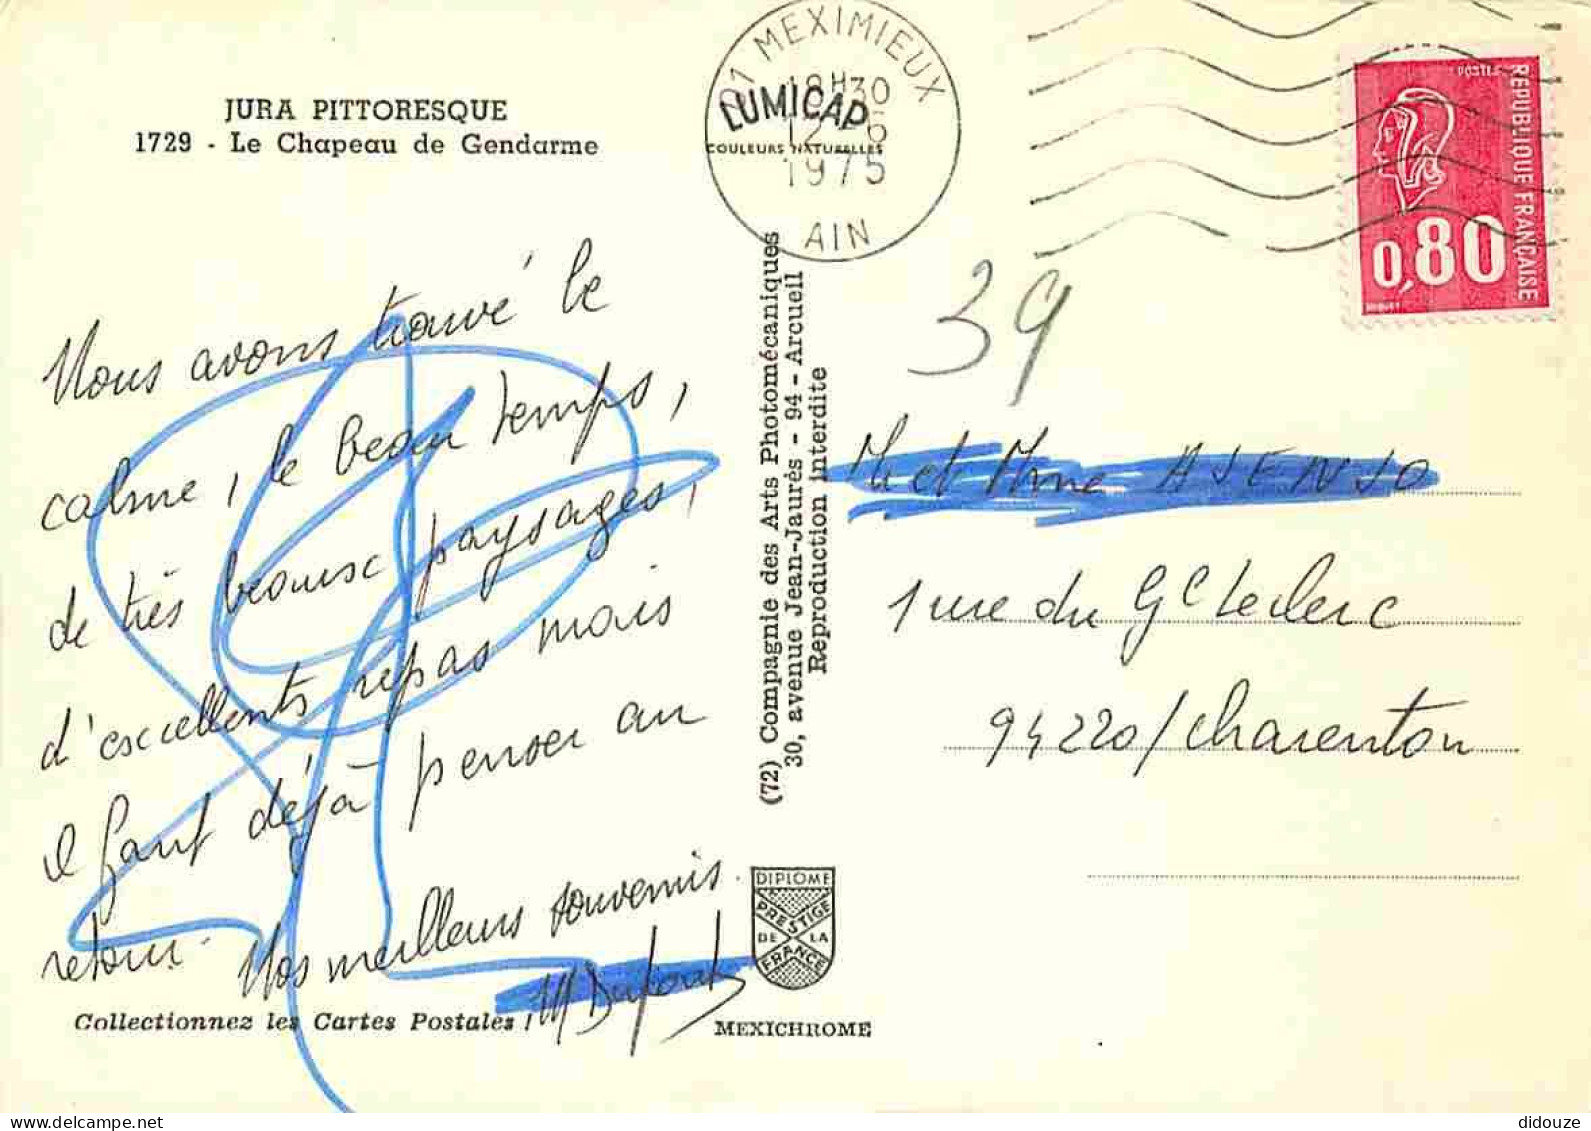 JURA PITTORESQUE
1729 - Le Chapeau de Gendarme
Nous avons trouvé le
calme, le beau temps,
de très beaux paysages,
d'excellents repas mais
il faut déjà penser au
retour. Nos meilleurs souvenirs.
M Dufour
Collectionnez les Cartes Postales !
01 MEXIMIEUX
18H30
12-6
1975
AIN
LUMICAP
COULEURS NATURELLES
(72) Compagnie des Arts Photomécaniques
30, avenue Jean-Jaurès - 94 - Arcueil
Reproduction interdite
DIPLOME
PRESTIGE
DE LA
FRANCE
MEXICHROME
POSTES
REPUBLIQUE FRANÇAISE
0,80
39
M et Mme ASENSO
1 rue du Gl Leclerc
94220/Charenton
delcampe.net
didouze